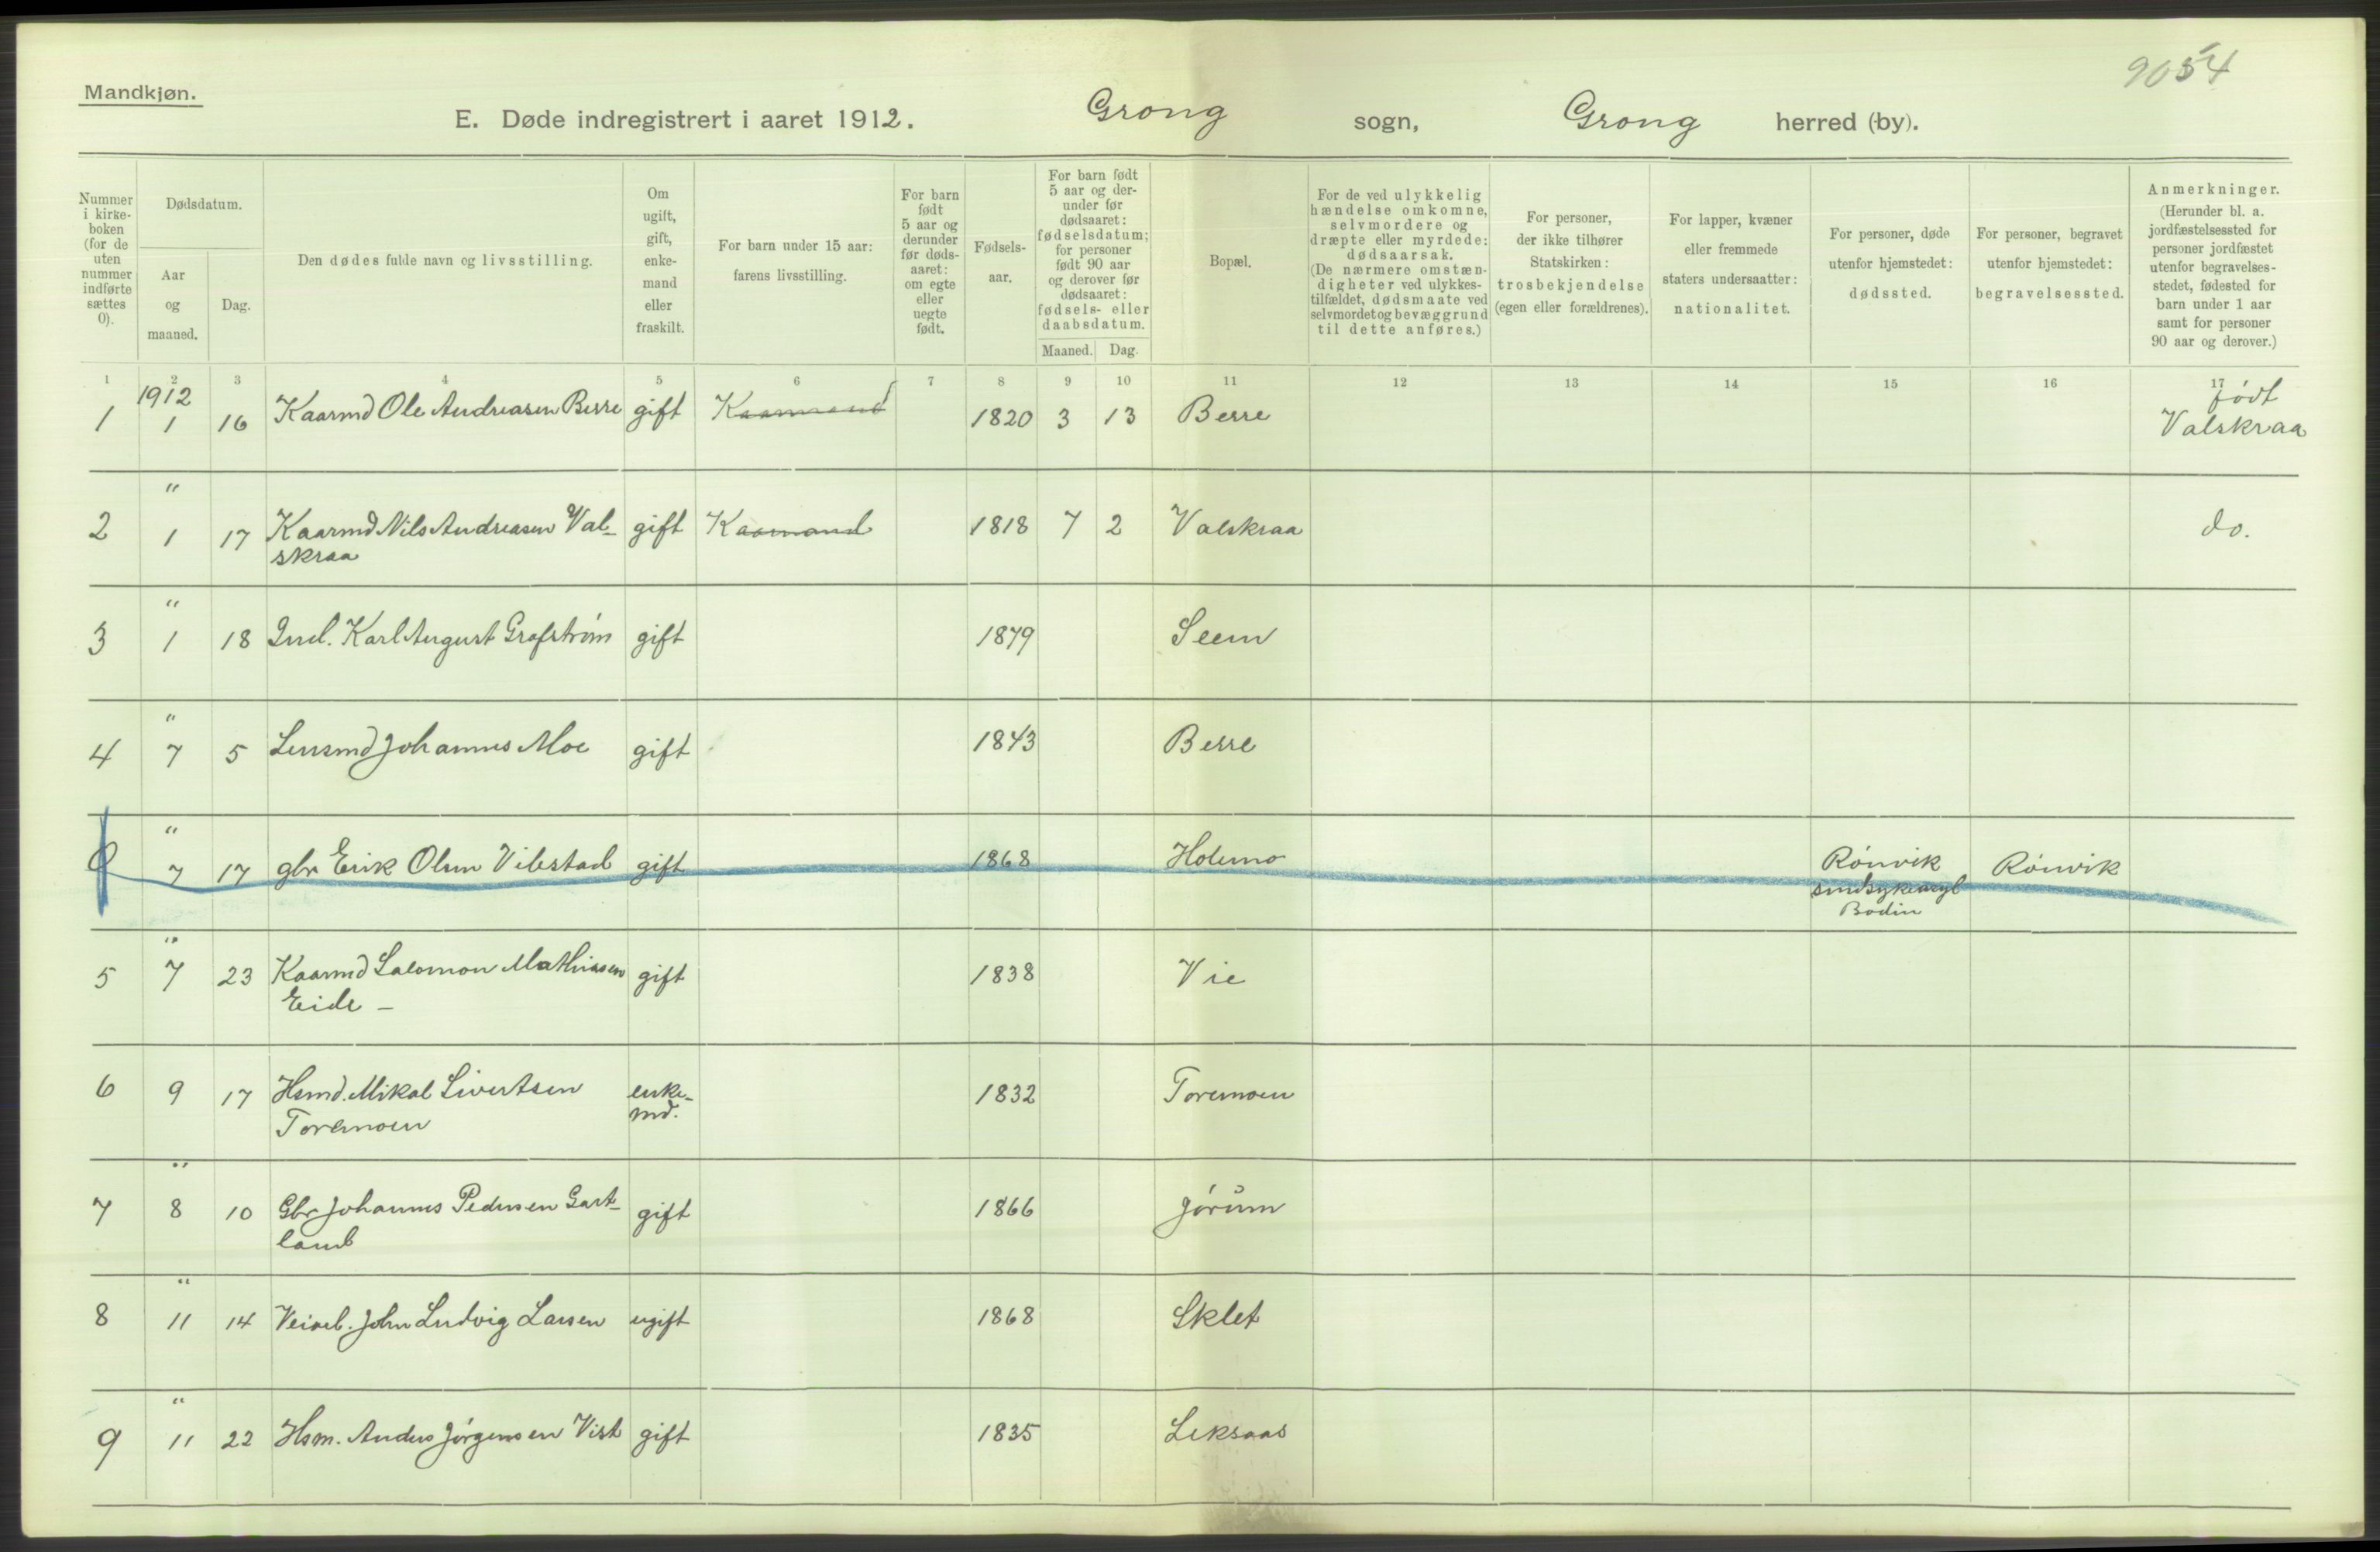 9054
Mandkjøn.
E. Døde indregistrert i aaret 1912. Grong sogn, Grong herred (by).
Nummer i kirke- boken (for de uten nummer indførte sættes 0).
Dødsdatum.
Aar og maaned.
Dag.
Den dødes fulde navn og livsstilling.
Om ugift, gift, enke- mand eller fraskilt.
For barn under 15 aar: farens livsstilling.
For barn født 5 aar og derunder før døds- aaret: om egte eller uegte født.
Fødsels- aar.
For barn født 5 aar og der- under før dødsaaret: fødselsdatum; for personer født 90 aar og derover før dødsaaret: fødsels- eller daabsdatum.
Maaned. Dag.
Bopæl.
For de ved ulykkelig hændelse omkomne, selvmordere og dræpte eller myrdede: dødsaarsak. (De nærmere omstæn- digheter ved ulykkes- tilfældet, dødsmaate ved selvmordet og bevæggrund til dette anføres.)
For personer, der ikke tilhører Statskirken: trosbekjendelse (egen eller forældrenes).
For lapper, kvæner eller fremmede staters undersaatter: nationalitet.
For personer, døde utenfor hjemstedet: dødssted.
For personer, begravet utenfor hjemstedet: begravelsessted.
Anmerkninger. (Herunder bl. a. jordfæstelsessted for personer jordfæstet utenfor begravelses- stedet, fødested for barn under 1 aar samt for personer 90 aar og derover.)
1 2 3 4 5 6 7 8 9 10 11 12 13 14 15 16 17
1912 født
1 1 16 Kaarmd Ole Andreasen Berre gift Kaarmand 1820 3 13 Berre Valskraa
"
2 1 17 Kaarmd Nils Andreasen Val- gift Kaarmand 1818 7 2 Valskraa do.
skraa
"
3 1 18 Ind. Karl August Grafstrøm gift 1879 Seem
"
4 7 5 Lensmd Johannes Moe gift 1843 Berre
"
0 7 17 gbr Erik Olsen Vibstad gift 1868 Holemo Rönvik Rönvik
sindsykeasyl
Bodin
"
5 7 23 Kaarmd Salomon Mathiassen gift 1838 Vie
Eide -
6 9 17 Hsmd. Mikal Sivertsen enke- 1832 Toremoen
Toremoen md.
"
7 8 10 Gbr Johannes Pedersen Gart- gift 1866 Jørŭm
land
"
8 11 14 John Ludvig Larsen ugift 1868 Sklet
"
9 11 22 Hsm. Anders Jørgensen Vist gift 1835 Leksaas